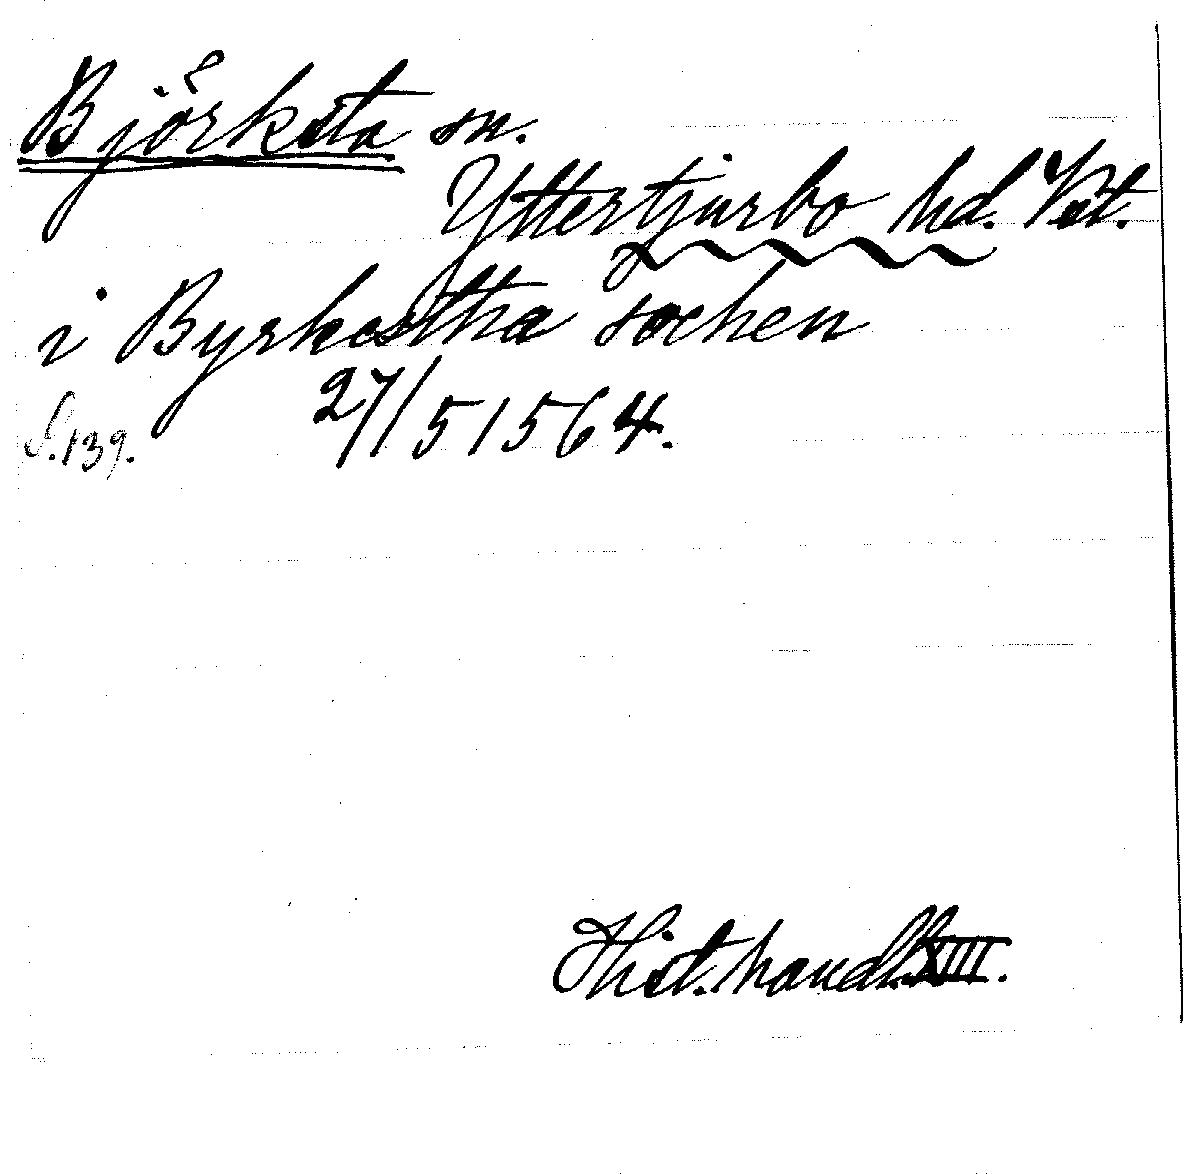 Björksta sn.
Yttertjurbo hd. Vst.
i Byrkestha sochen
S. 139. 27/5 1564.
Hist. handl. XIII.